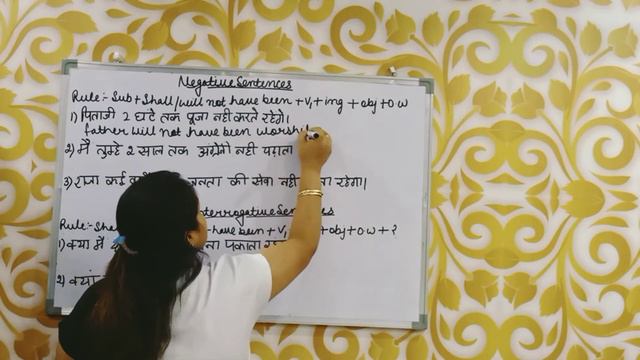 Negative Sentences
Rule:- Sub + Shall/will not have been + V₁ + ing + obj + O.W
1) पिताजी 2 घंटे तक पूजा नहीं करते रहेंगे।
father will not have been worsh
2) मैं तुम्हे 2 साल तक अंग्रेजी नहीं पढ़ाता
3) राजा कई जनता की सेवा नहीं रहेगा।
Interrogative Sentences
Rule:- have been + V₁ + obj + O.W + ?
1) क्या मैं पकाता
2) क्या